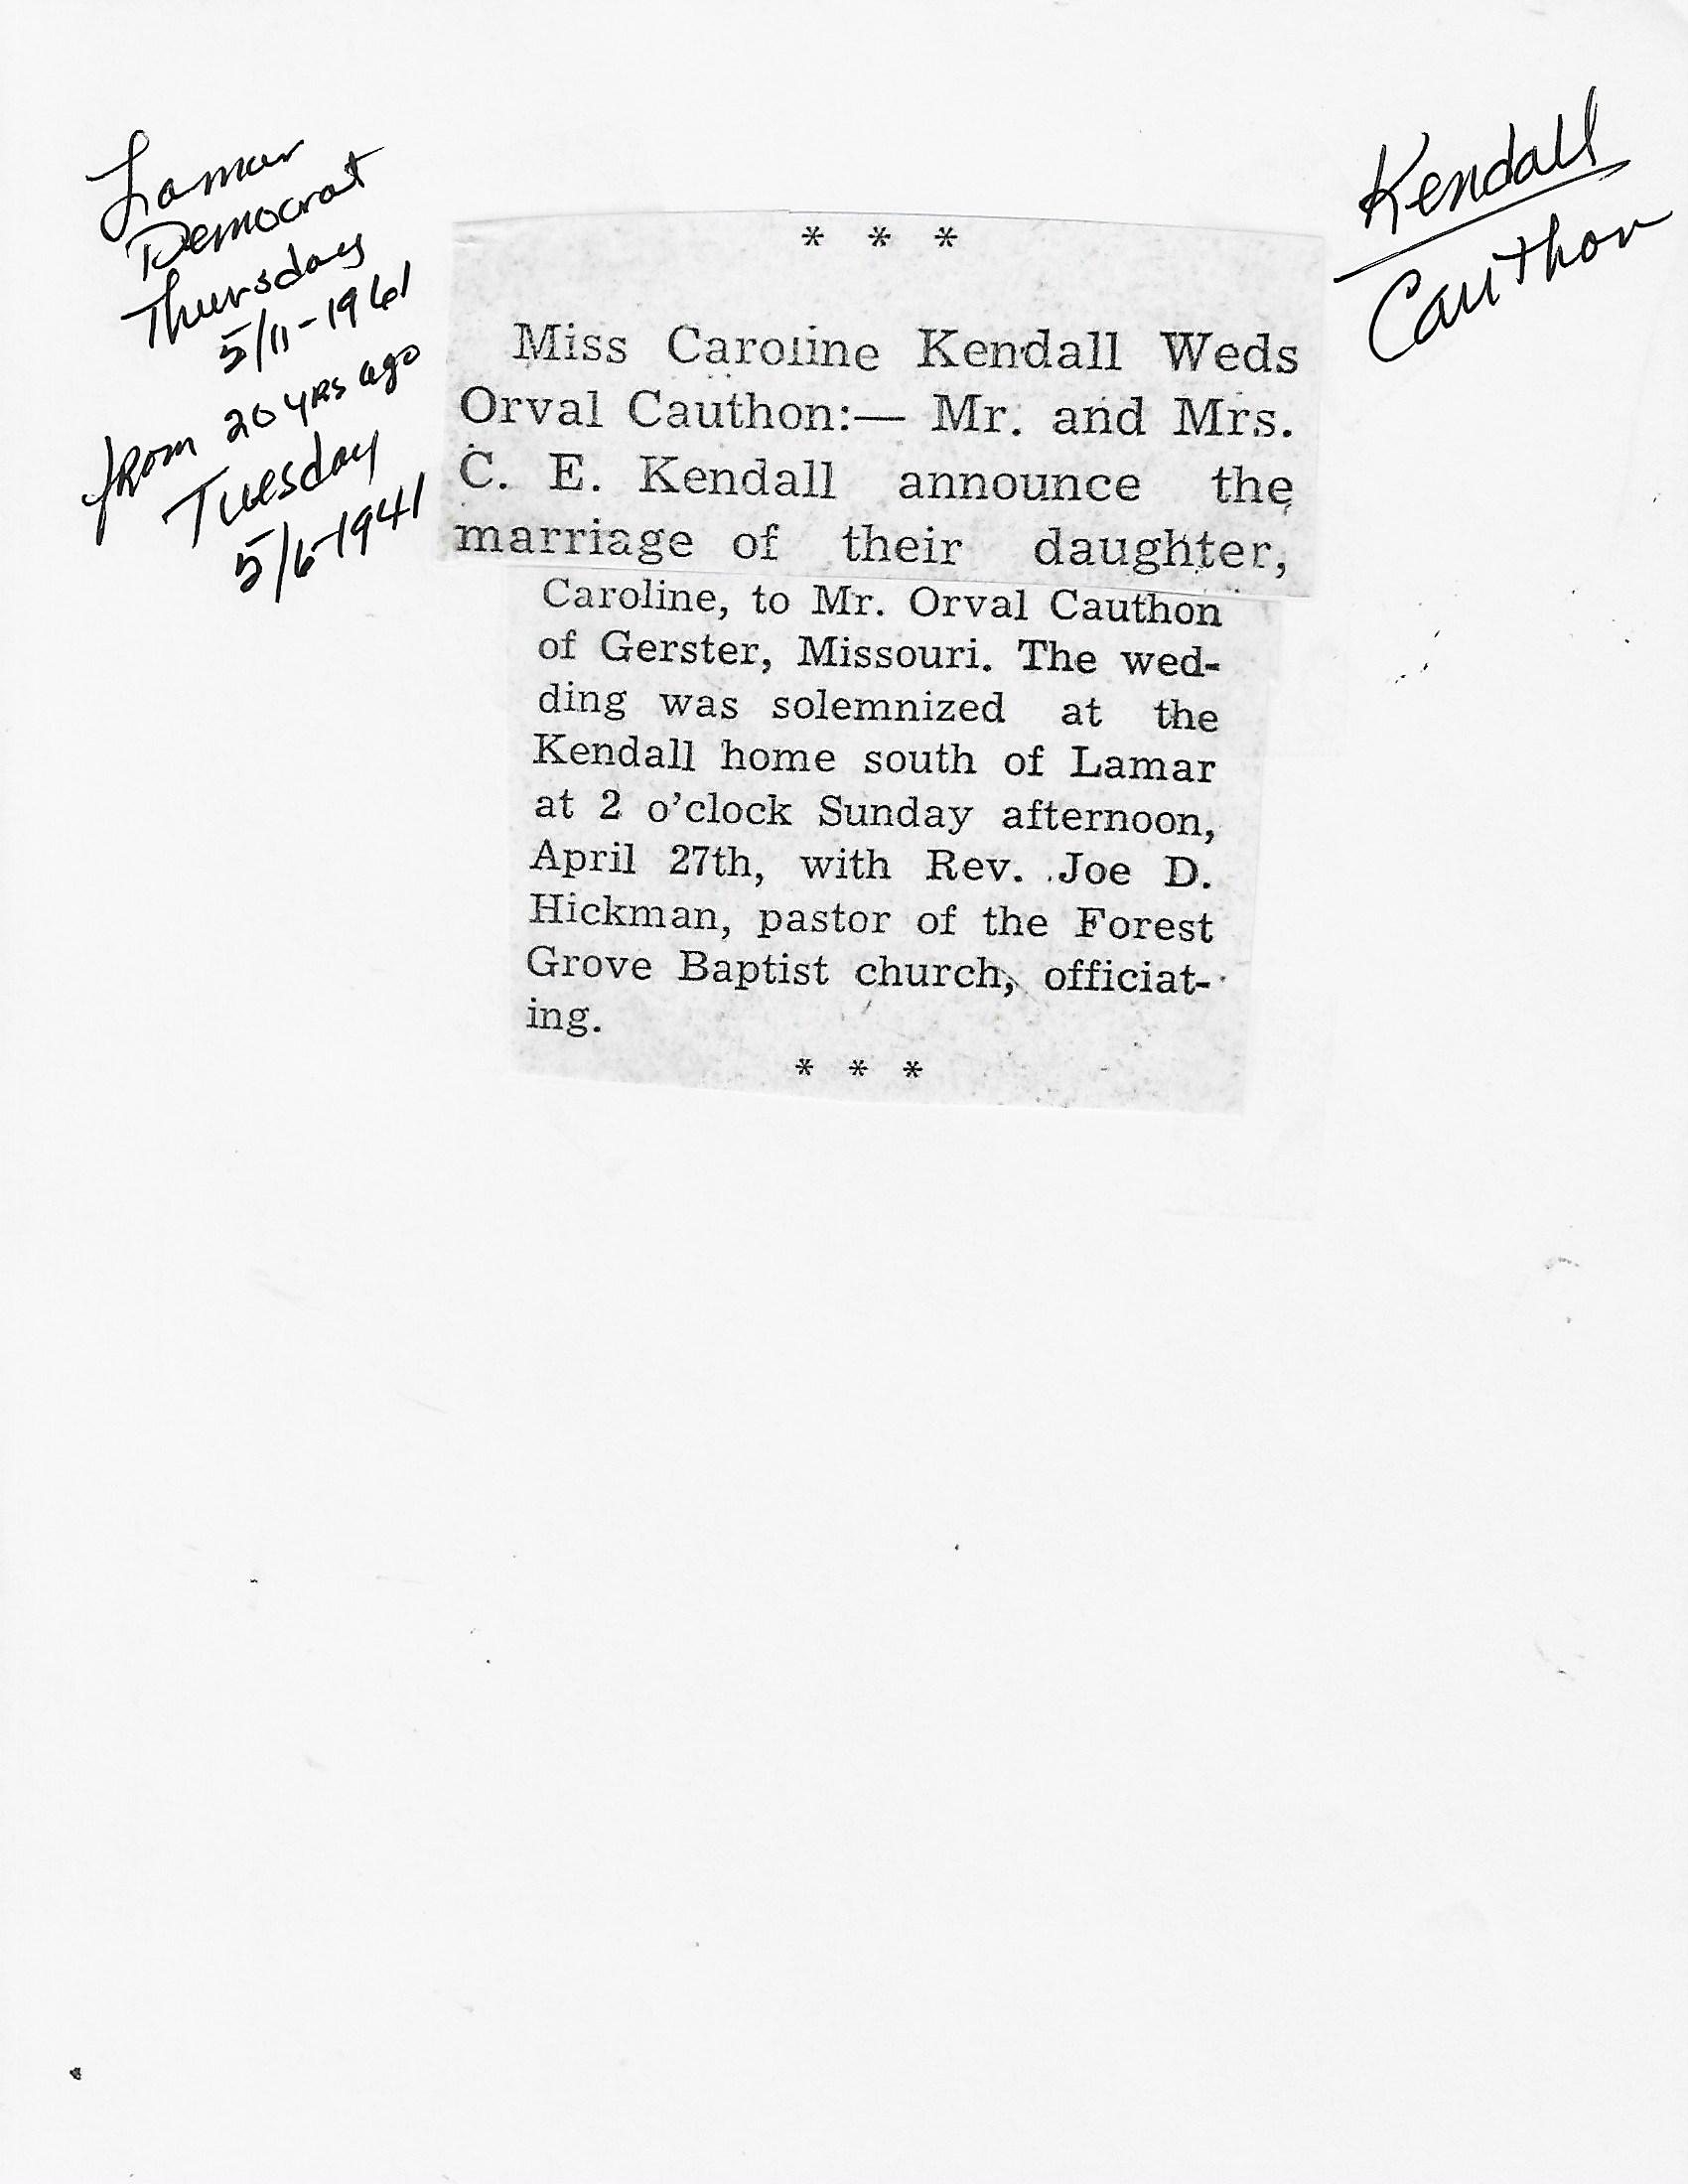 Lamar
Democrat
Thursday
5/11-1961
from 20 yrs ago
Tuesday
5/6-1941
Kendall
Cauthon
* * *
Miss Caroline Kendall Weds
Orval Cauthon:— Mr. and Mrs.
C. E. Kendall announce the
marriage of their daughter,
Caroline, to Mr. Orval Cauthon
of Gerster, Missouri. The wed-
ding was solemnized at the
Kendall home south of Lamar
at 2 o'clock Sunday afternoon,
April 27th, with Rev. Joe D.
Hickman, pastor of the Forest
Grove Baptist church, officiat-
ing.
* * *